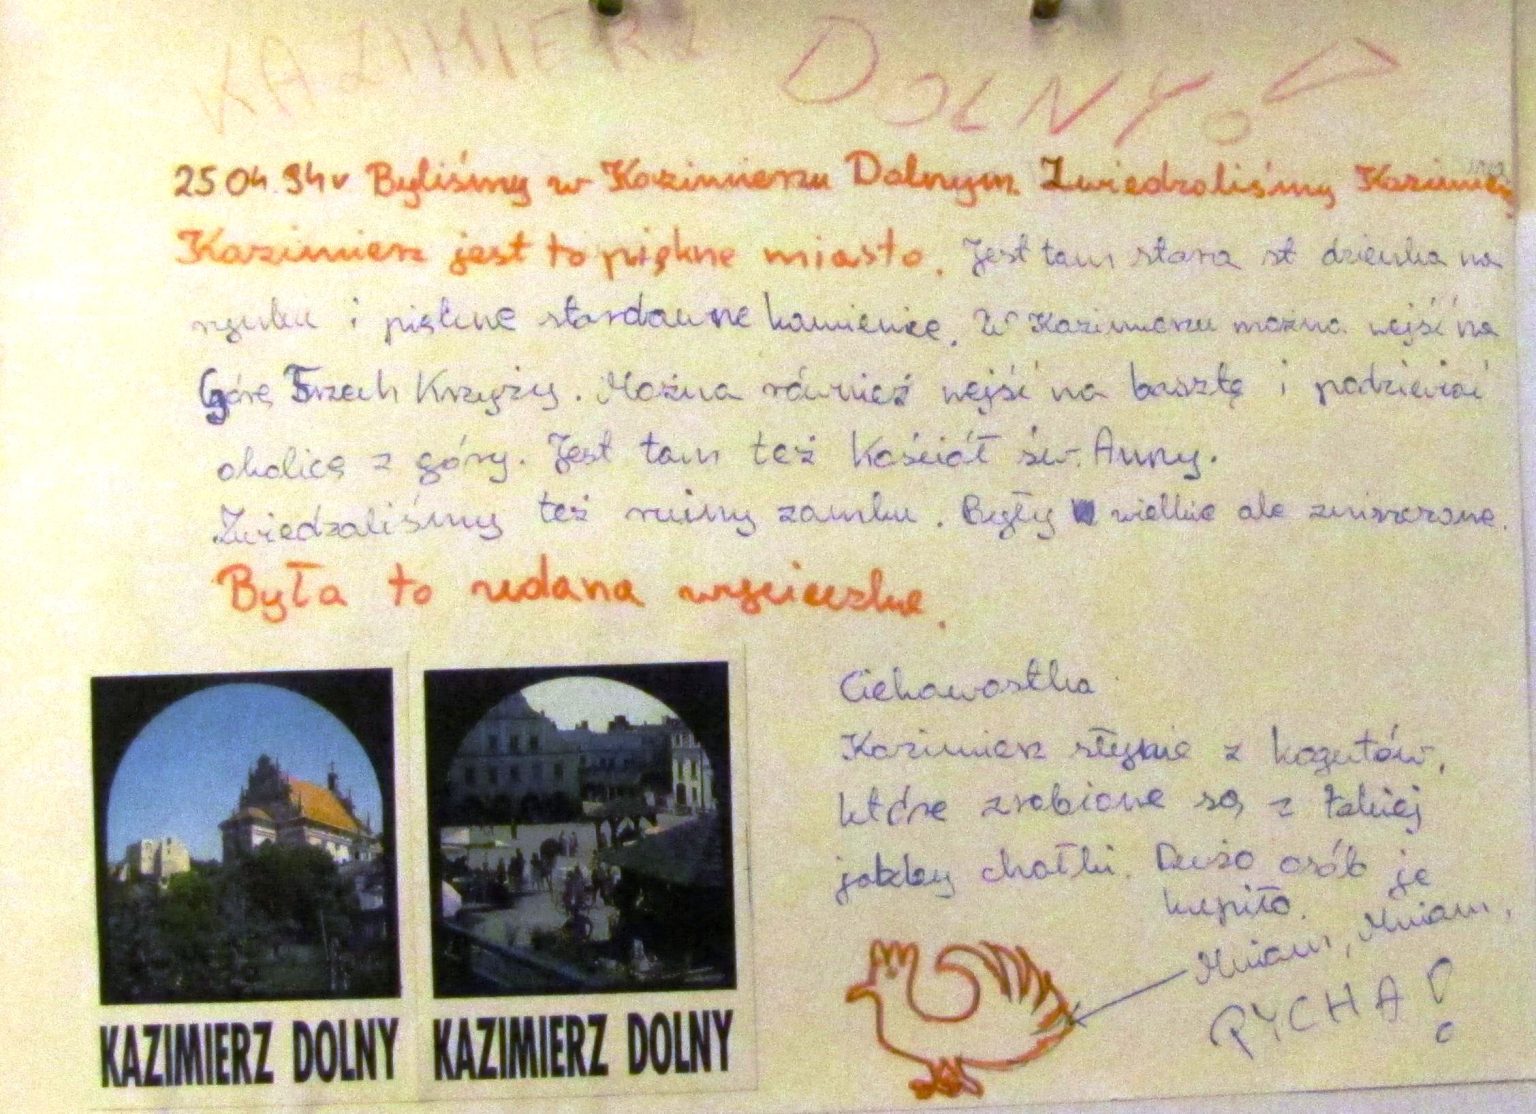 KAZIMIERZ DOLNY!
25.04.94r Byliśmy w Kazimierzu Dolnym. Zwiedzaliśmy Kazimierz.
Kazimierz jest to piękne miasto. Jest tam stara st dzienka na
rynku i piękne stardawne kamienice. W Kazimierzu można wejść na
Górę Trzech Krzyży. Można również wejść na basztę i podziwiać
okolicę z góry. Jest tam też Kościół św. Anny.
Zwiedzaliśmy też ruiny zamku. Były wielkie ale zniszczone.
Była to udana wycieczka.
Ciekawostka
Kazimierz słynie z kogutów,
które zrobione są z takiej
jakby chałki. Dużo osób je
kupiło.
Mniam, Mniam,
PYCHA!
KAZIMIERZ DOLNY
KAZIMIERZ DOLNY